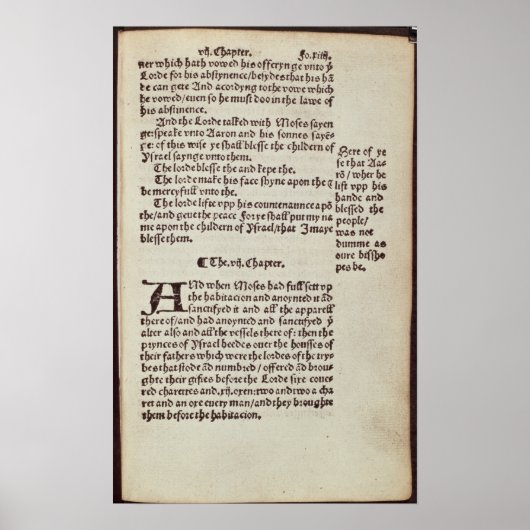 vij. Chapter. Fo.xiiij.
ner which hath vowed his offerynge vnto ẏ
Lorde for his abstynence/besydes that his hā
de can gete And acordyng to the vowe which
he vowed/even so he must doo in the lawe of
his abstinence.
And the Lorde talked with Moses sayen
ge: speake vnto Aaron and his sonnes sayē-
ge: of this wise ye shall blesse the childern of
Ysrael saynge vnto them.
The lorde blesse the and kepe the.
The lorde make his face shyne apon the
& be mercyfull vnto the.
The lorde lifte vpp his countenaunce apō
the/and geue the peace For ye shall put my na
me apon the childern of Ysrael/that I maye
blesse them.
Here of ye
se that Aa-
rō/wher he
lift vpp his
hande and
blessed the
people/
was not
dumme as
oure bissho
pes be.
¶ The .vij. Chapter.
ANd when Moses had full sett vp
the habitacion and anoynted it ād
sanctifyed it and all the apparell
there of/and had anoynted and sanctifyed ẏ
alter also and all the vessels there of: then the
prynces of Ysrael heedes over the housses of
their fathers which were the lordes of the try-
bes that stode ād numbred/offered ād brou-
ghte their giftes before the Lorde sixe coue-
red charettes and .xij. oxen: two and two a cha
ret and an oxe euery man/and they broughte
them before the habitacion.